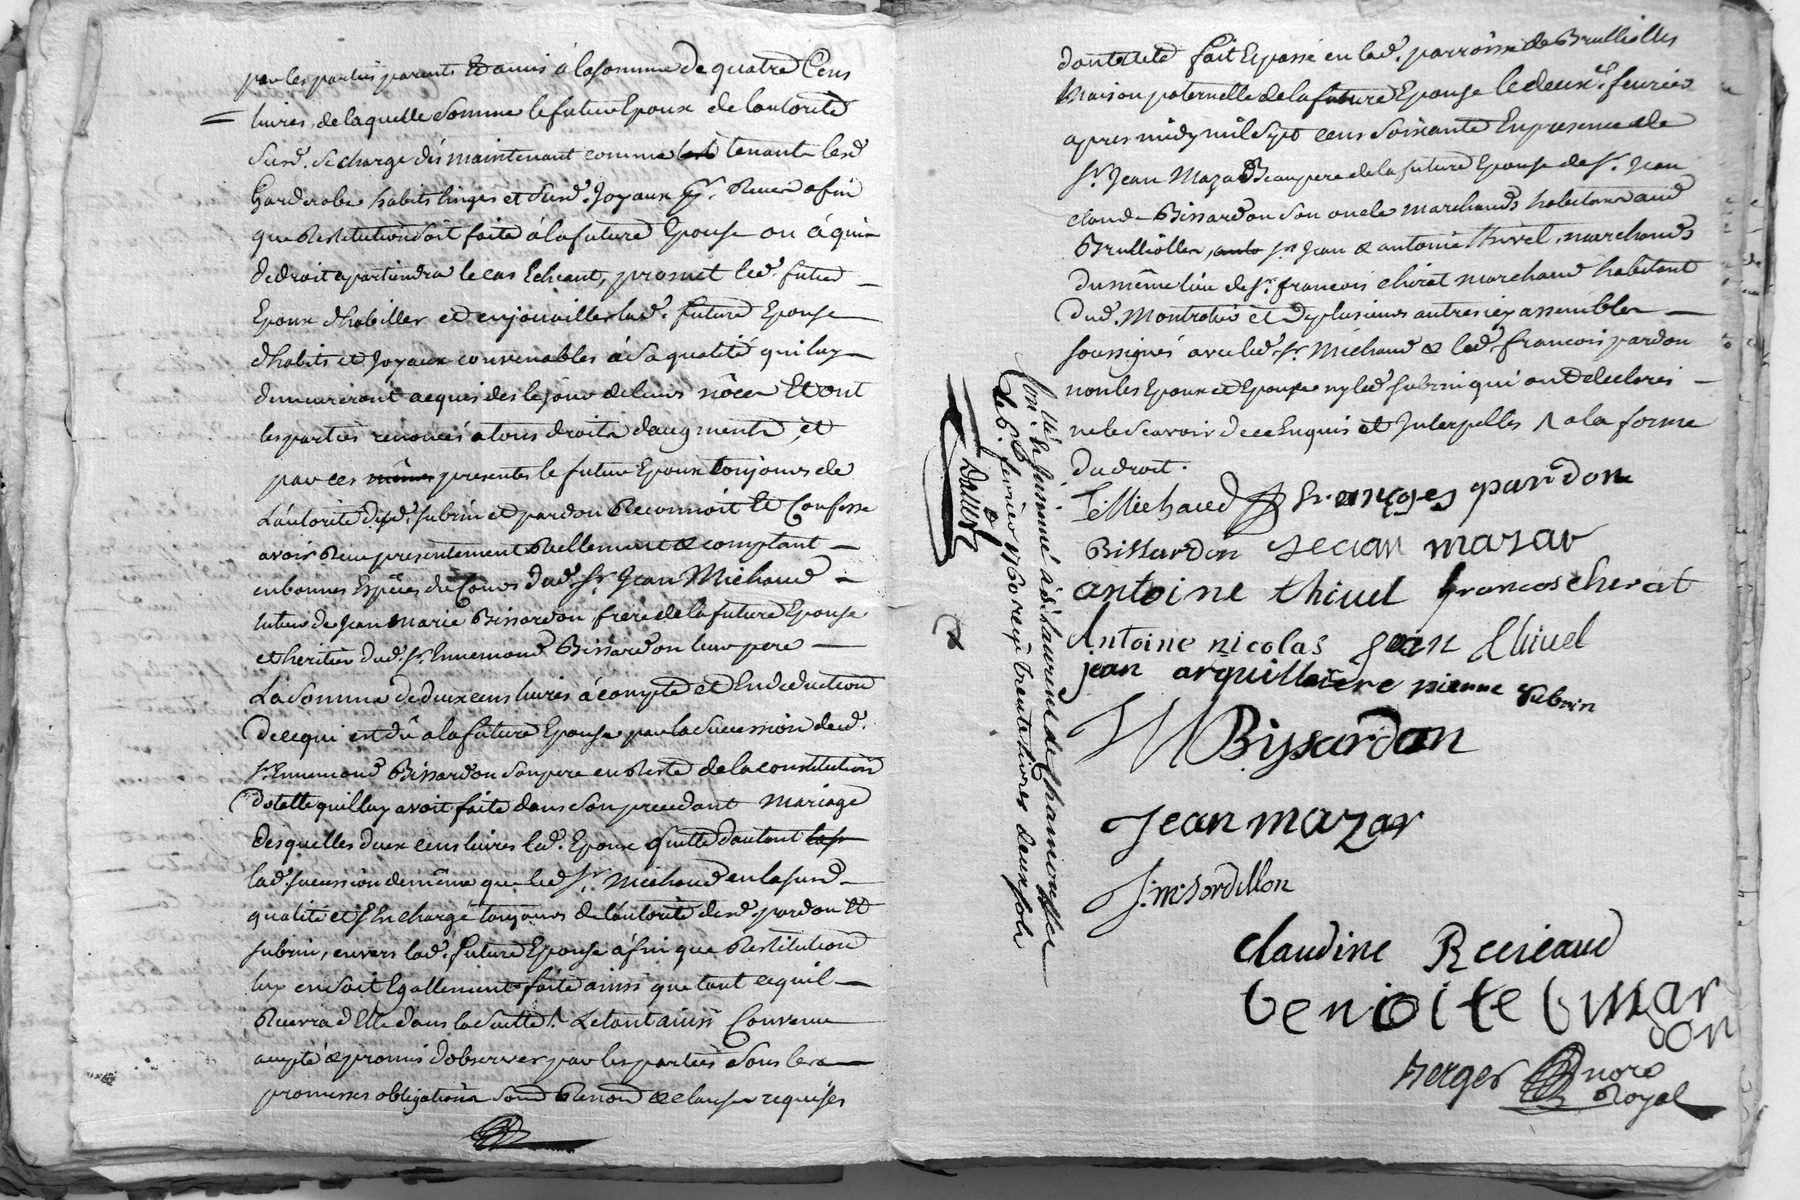 par les parties parents Et amis a la somme de quatre Cens
livres, de laquelle Somme le futur Epoux de lautorité
Susd. Se charge dès maintenant comme tenant lesd
Garderobe habits linges et Susd. Joyaux pr. Reçus afin
que Restitution Soit faite à la future Epouse ou à qui
de droit apartiendra le cas Echeant, promet led. futur
Epoux d'habiller et enjouailler lad. future Epouse
d'habits et Joyaux convenables à Sa qualité qui luy
demeureront acquis dès le jour de leurs nôces Et ont
les parties renoncés a tous droits daugments, et
par ces mêmes presentes le futur Epoux toujours de
L'autorité desd. subrin et pardon Reconnoit Et Confesse
avoir Reçu presentement Réellement & comptant
en bonnes Espèces de Cours dud. Sr. Jean Michaud
tuteur de Jean Marie Bissardon frere de la future Epouse
et heritier dud. Sr. Ennemond Bissardon leur pere
La Somme de deux cens livres à compte et En deduction
De ce qui est dû a la future Epouse par la Succession dud.
Sr. Ennemond Bissardon Son pere en Reste de la constitution
Dotalle quil luy avoit faite dans Son precedent Mariage
Desquelles deux cens livres led. Epoux quitte dautant
lad. succession de même que led. Sr. Michaud en la susd.
qualité et S'En charge toujours de l'autorité desd. pardon Et
subrin, envers lad. future Epouse à fin que Restitution
luy en Soit Egallement faite ainsi que tout ce quil
Recevra d'Elle dans la Suitte. Le tout ainsi Convenu
accepté & promis d'observer par les parties Sous leurs
promesses obligations Soumd. Renond. & clauses requises
dont acte fait Et passé en lad. parroisse de Brullioles
Maison paternelle de la future Epouse le deuxe. fevrier
apres midy mil Sept cens Soixante En presence de
Sr. Jean Mazard Beaupere de la future Epouse de Sr. Jean
claude Bissardon Son oncle marchands habitans aud
Brullioles, Sr. Jean & antoine thivel marchands
du même lieu de Sr. francois chirat marchand habitant
dud. Montrotier et de plusieurs autres icy assemblés
soussignés avec led. Sr. Michaud & led. francois pardon
non les Epoux et Epouse ny led. subrin qui ont declarés
ne le Scavoir de ce Enquis et Interpellés a la forme
du droit.
Michaud françoes pardon
Bissardon Jean mazar
antoine thivel francos cherat
Antoine nicolas Jean thivel
jean arquilliere pierre subrin
Bissardon
Jean mazar
J. M. Sordillon
claudine Reveraud
benoite bissar
don
berger notre
Royal
Con.llé & Insinué à St. Laurent de Chamousset
le 6e. fevrier 1760 reçu trente livres deux sols